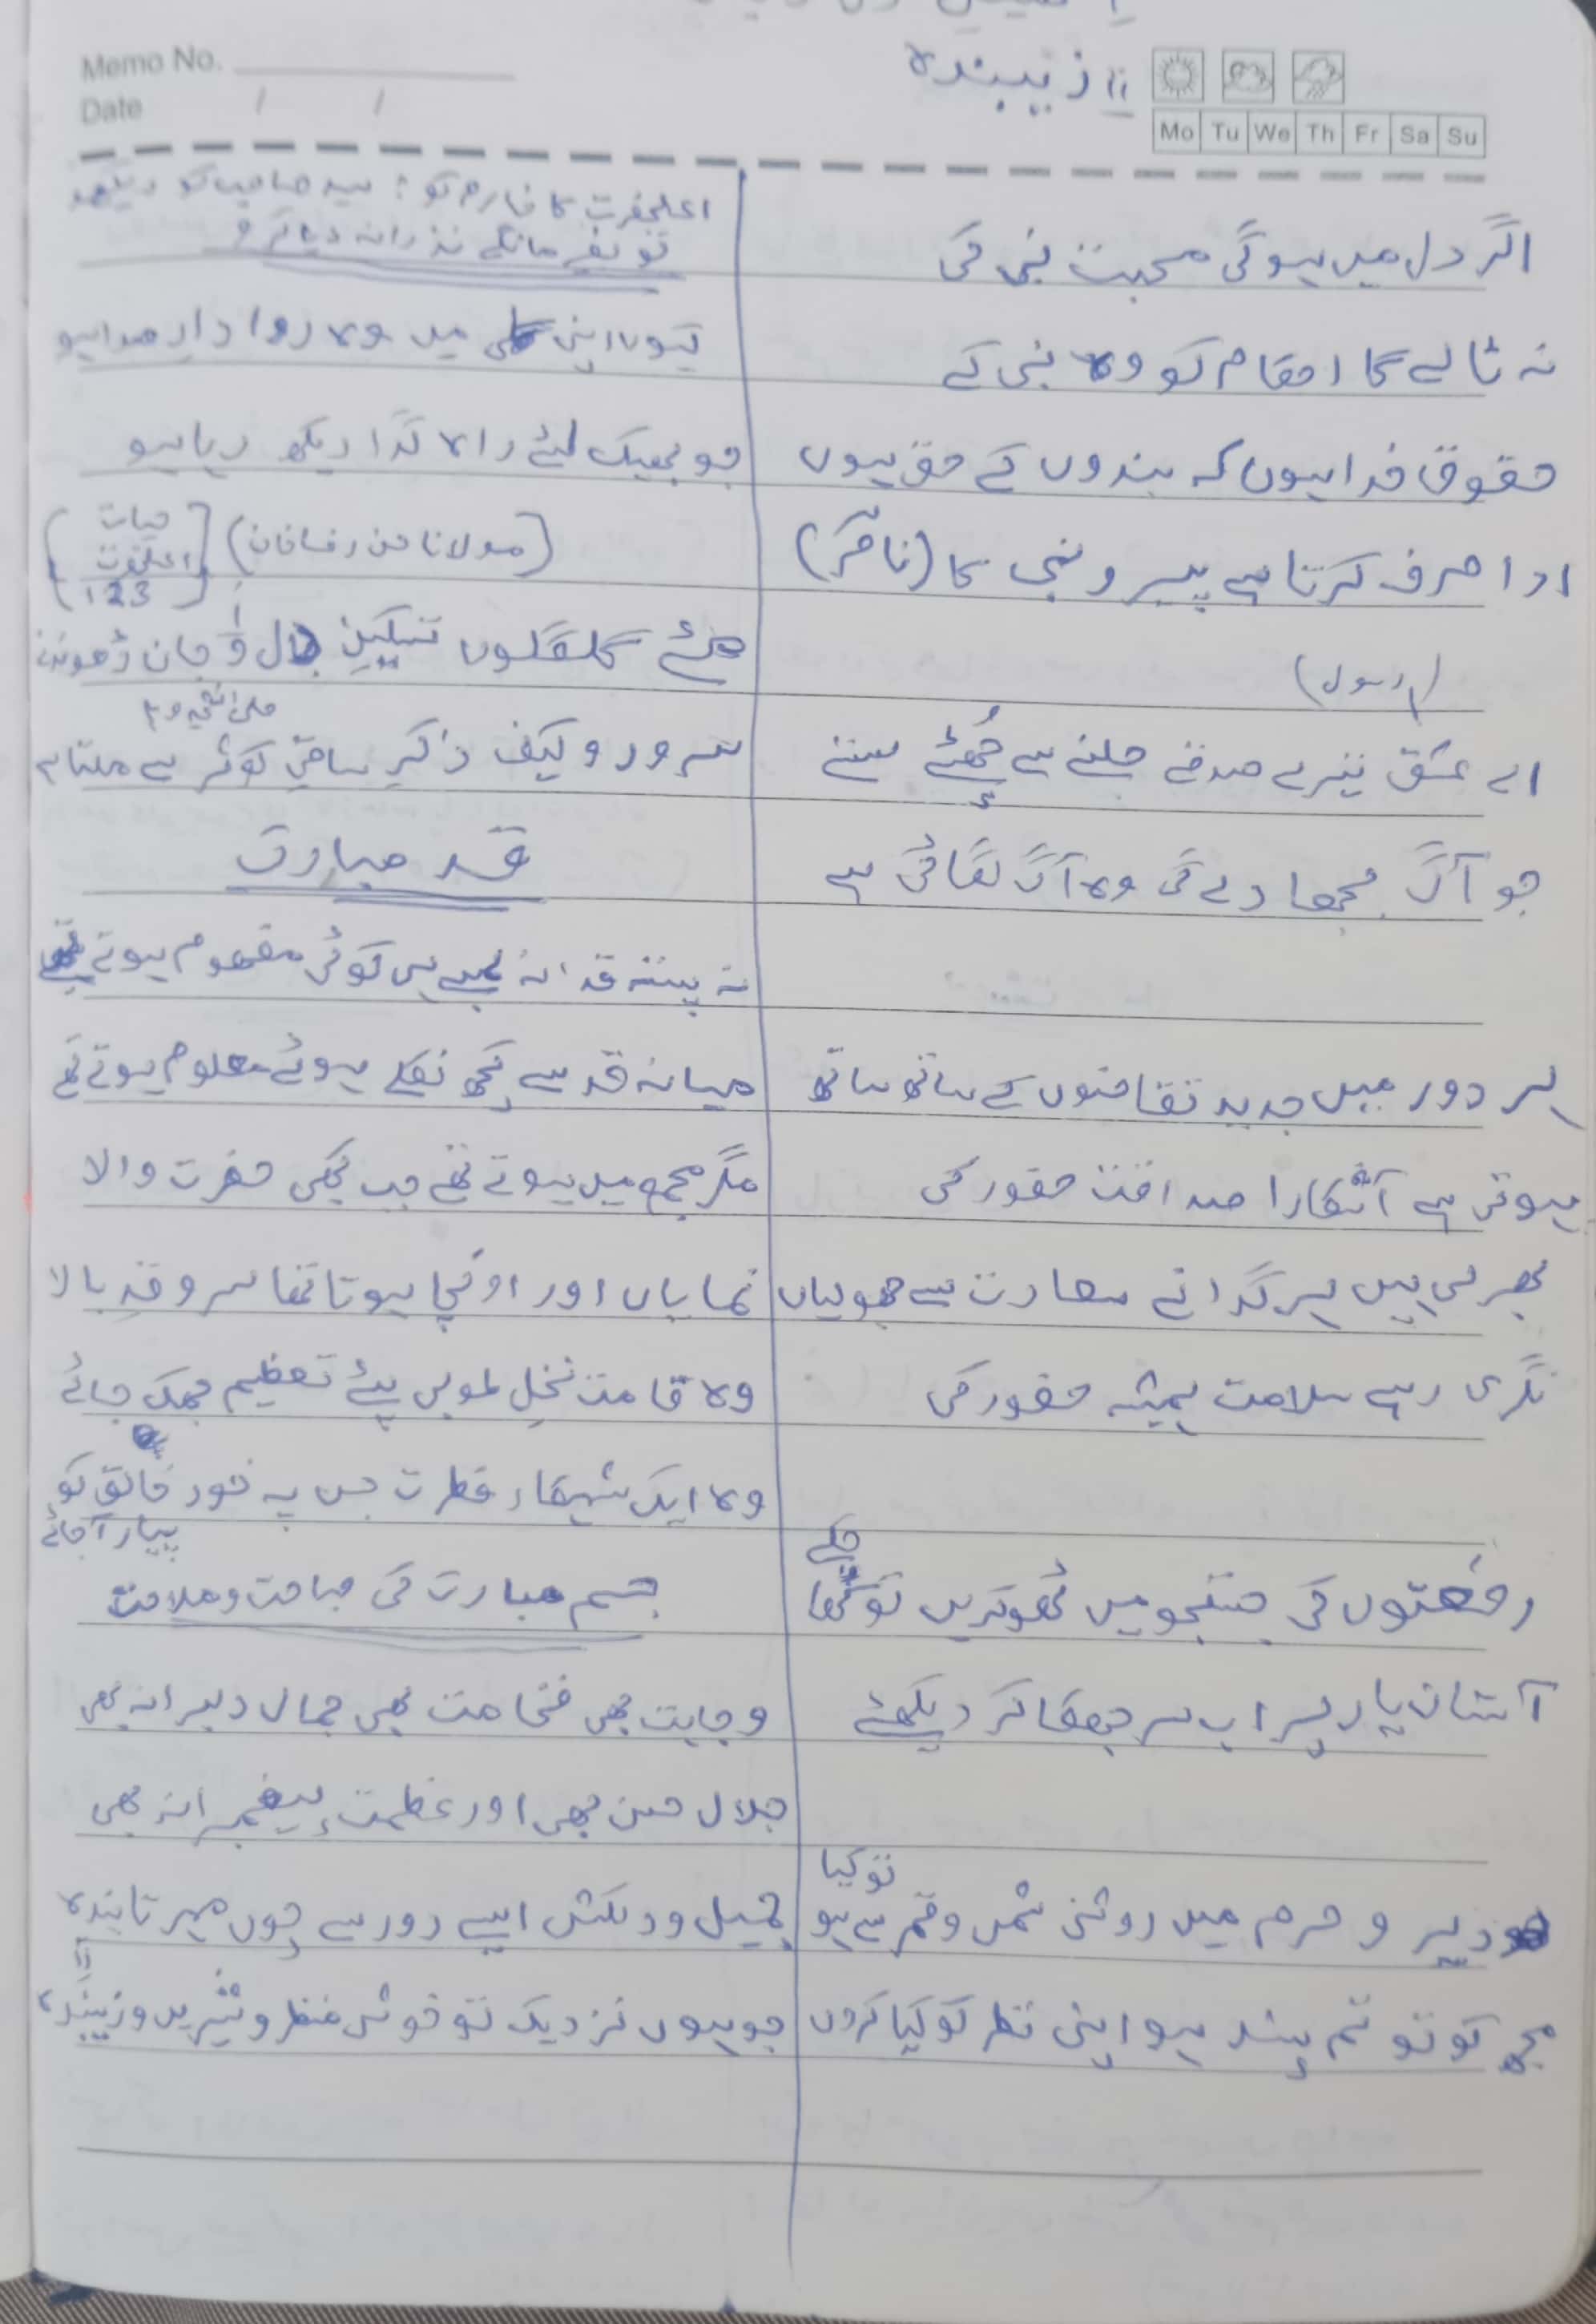 Memo No.
Date / /
۱۱ زیبندہ
Mo Tu We Th Fr Sa Su
اگر دل میں ہوگی محبت نبی کی
نہ ٹالے گا احقام کو وہ نبی کے
حقوق خدا ہوں کہ بندوں کے حق ہوں
ادا صرف کرتا ہے پیرو نبی کا
(رسول)
اے عشق تیرے صدقے جلنے سے چُھٹے سستے
جو آگ بجھا دے گی وہ آگ لگائی ہے
اس دور میں جدید تقاضوں کے ساتھ ساتھ
ہوتی ہے آشکارا صداقت حضور کی
بھر لی ہیں ہر گدا نے سعادت سے جھولیاں
نگری رہے سلامت ہمیشہ حضور کی
رفعتوں کی جستجو میں ٹھوکریں تو کھا چکے
آستان یار پر اب سر جھکا کر دیکھئے
دیر و حرم میں روشنی شمس و قمر سے ہو تو کیا
مجھ کو تو تم پسند ہو اپنی نظر کو کیا کروں
اعلحضرت کا خادم کو : سید صاحب کو دیکھو
تو بغیر مانگے نذرانہ دیا کرو
کیوں اپنی گلی میں وہ روا دار صدا ہو
جو بھیک لئے راہ گدا دیکھ رہا ہو
(مولانا حسن رضا خان) [حیات اعلحضرت 123]
مئے گلگوں تسکینِ دل و جان ڈھونڈنے
سرور و کیف ذکرِ ساقیِ کوثر سے ملتا ہے
قد مبارک
نہ پستہ قد نہ لمبے ہی کوئی مفہوم ہوتے تھے
میانہ قد سے کچھ نکلے ہوئے معلوم ہوتے تھے
مگر مجمع میں ہوتے تھے جب کبھی حضرت والا
نمایاں اور اونچا ہوتا تھا سر و قدِ بالا
وہ قامت نخلِ طوبی پئے تعظیم جھک جائے
وہ ایک شہکار فطرت جس پہ خود خالق کو
پیار آجائے
جسم مبارک کی صباحت و ملاحت
وجاہت بھی ضخامت بھی جمال دلبرانہ بھی
جلال حسن بھی اور عظمت پیغمبرانہ بھی
جمیل و دلکش ایسے دور سے جوں مہر تابندہ
جو ہوں نزدیک تو خوش منظر و شیریں و زیبندہ